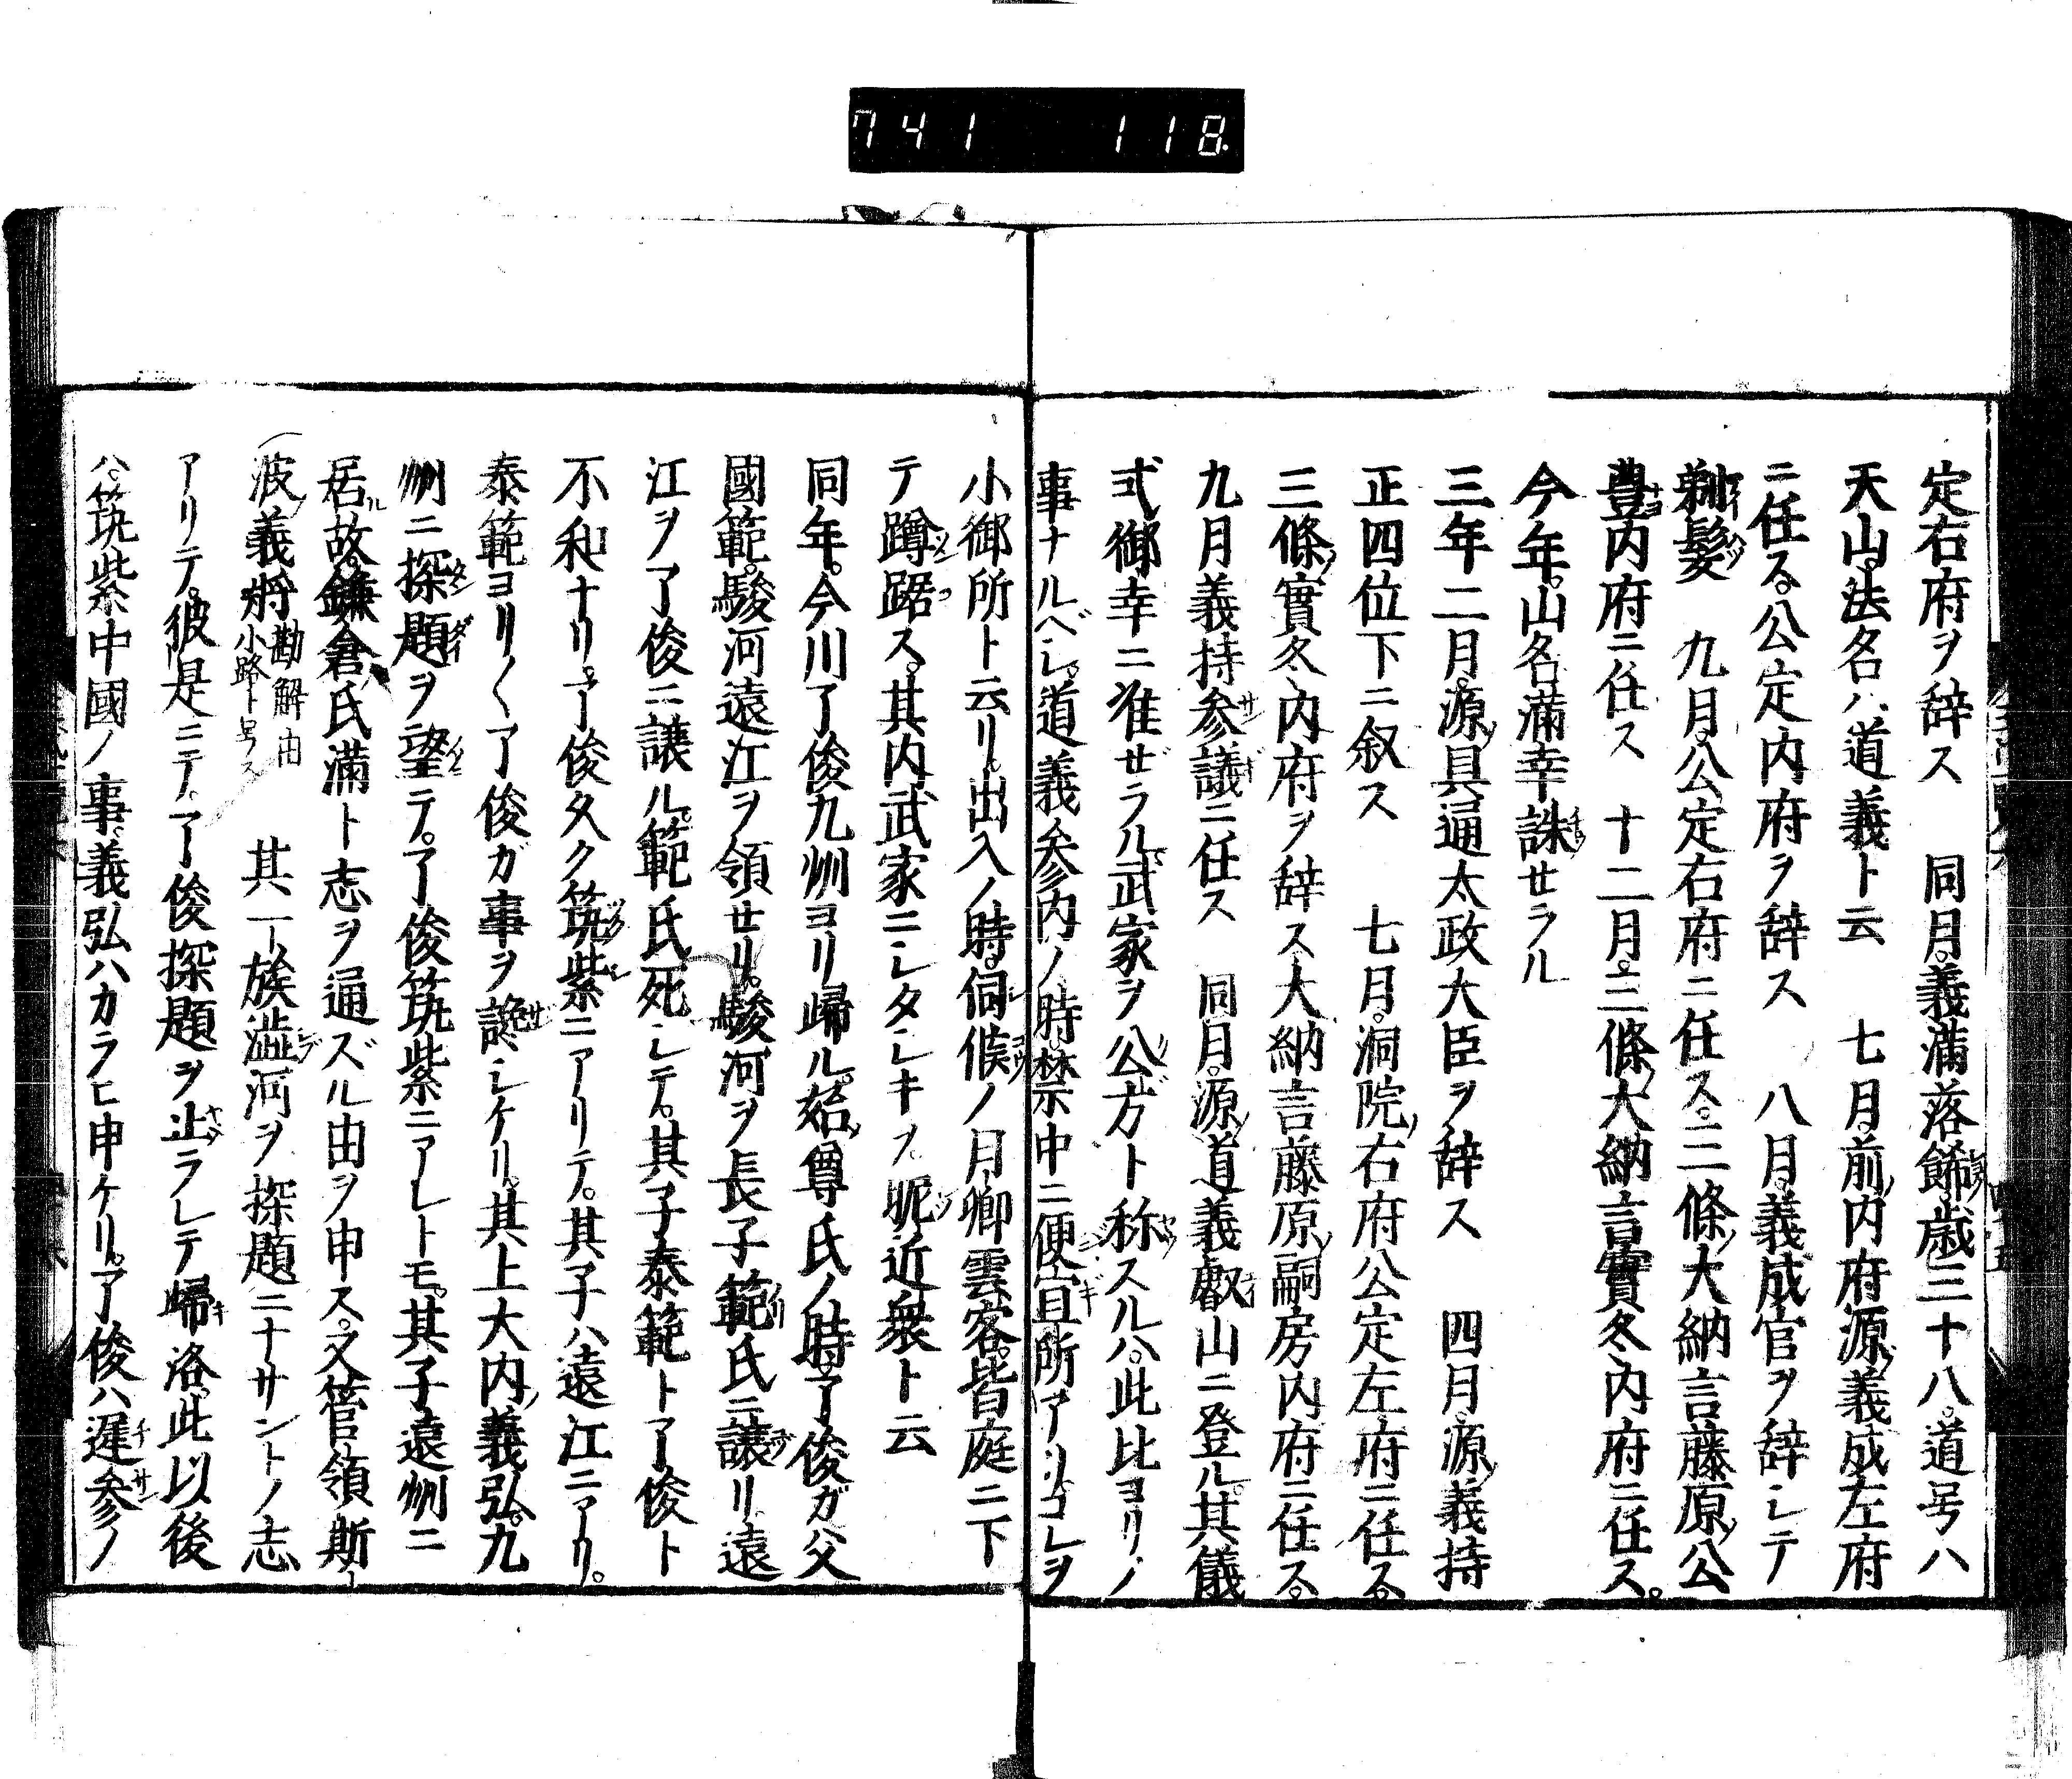 741 118
定右府ヲ辞ス 同月。義満落餝。歳三十八。道号ハ
天山。法名ハ道義ト云 七月。前内府源義成左府
ニ任ス。公定内府ヲ辞ス 八月。義成官ヲ辞シテ
剃髪 九月。公定右府ニ任ス。三條大納言藤原公
豊内府ニ任ス 十二月。三條大納言實冬内府ニ任ス。
今年。山名満幸誅セラル
三年二月。源具通太政大臣ヲ辞ス 四月。源義持
正四位下ニ叙ス 七月。洞院右府公定左府ニ任ス。
三條實冬内府ヲ辞ス大納言藤原嗣房内府ニ任ス。
九月義持参議ニ任ス 同月。源道義叡山ニ登ル。其儀
式御幸ニ准ゼラル。武家ヲ公方ト称スルハ。此比ヨリノ
事ナルベシ。道義参内ノ時。禁中ニ便宜所アリ。コレヲ
小御所ト云リ。出入ノ時。伺候ノ月卿雲客。皆庭ニ下
テ蹲踞ス。其内武家ニシタシキヲ。昵近衆ト云
同年。今川了俊九州ヨリ歸ル。始尊氏ノ時。了俊ガ父
國範。駿河遠江ヲ領セリ。駿河ヲ長子範氏ニ譲リ。遠
江ヲ了俊ニ譲ル。範氏死シテ。其子泰範ト了俊ト
不和ナリ。了俊久ク筑紫ニアリテ。其子ハ遠江ニアリ。
泰範ヨリ〱了俊ガ事ヲ讒シケリ。其上大内義弘。九
州ニ探題ヲ望テ。了俊筑紫ニアレトモ。其子遠州ニ
居故。鎌倉氏満ト志ヲ通ズル由ヲ申ス。又管領斯
波義将勘解由小路ト号ス 其一族澁河ヲ探題ニナサントノ志
アリテ。彼是ニテ。了俊探題ヲ止ラレテ歸洛。此以後
ハ。筑紫中國ノ事。義弘ハカラヒ申ケリ。了俊ハ遅参ノ